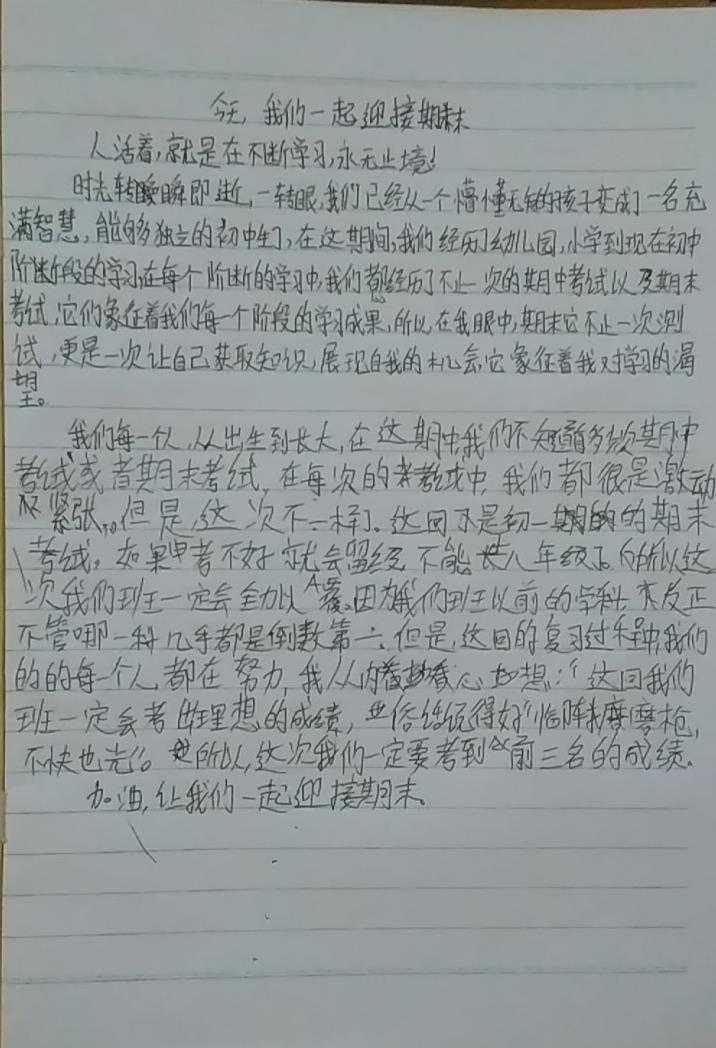 今天，我们一起迎接期末
人活着，就是在不断学习，永无止境！
时光转瞬即逝，一转眼，我们已经从一个懵懂无知的孩子变成了一名充
满智慧，能够独立的初中生了，在这期间，我们经历了幼儿园，小学到现在初中
阶段的学习，在每个阶段的学习中，我们都经历了不止一次的期中考试以及期末
考试，它们象征着我们每一个阶段的学习成果，所以，在我眼中，期末它不止一次测
试，更是一次让自己获取知识，展现自我的机会，它象征着我对学习的渴
望。
我们每一个人，从出生到长大，在这期中，我们不知道多少次其中
考试或者期末考试，在每次的考试中，我们都很是激动
紧张，但是，这次不一样了。这回是初一期的的期末
考试，如果考不好就会留级，不能八年级了，所以这
次我们班一定会全力以，因为我们班以前的学科，反正
不管哪一科几乎都是倒数第一，但是，这回的复习过程中，我们
的的每个人，都在努力，我从内心妙想：“这回我们
班一定会考出理想的成绩，俗话说得好“临阵磨枪，
不快也光”。所以，这次我们一定要考到前三名的成绩。
加油，让我们一起迎接期末。